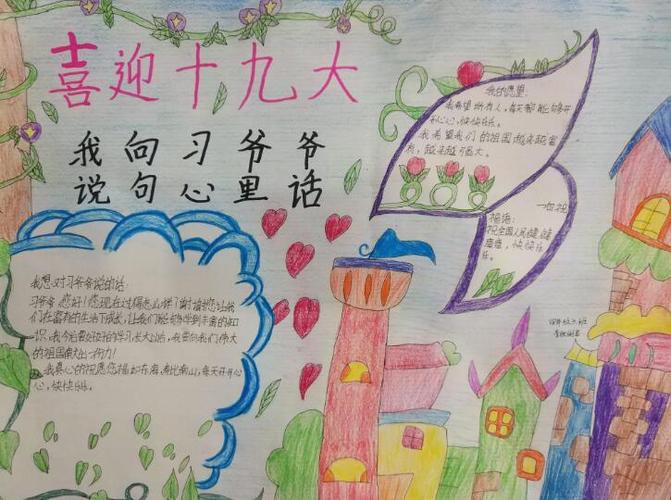 喜迎十九大
我向习爷爷
说句心里话
我的愿望:
我希望所有人,每天都能够开
开心心,快快乐乐。
我希望我们的祖国越来越富
有,越来越强大。
一句祝
福语:
祝全国人民健健
康康,快快乐
乐。
我想对习爷爷说的话:
习爷爷,您好!您现在过得怎么样?谢谢您让我
们在富有的生活下成长,让我们能够学到丰富的知
识,我今后要好好的学习,长大以后,我要向我们伟大
的祖国献出一份力!
我真心的祝愿您福如东海,寿比南山,每天开开心
心,快快乐乐。
四年级六班